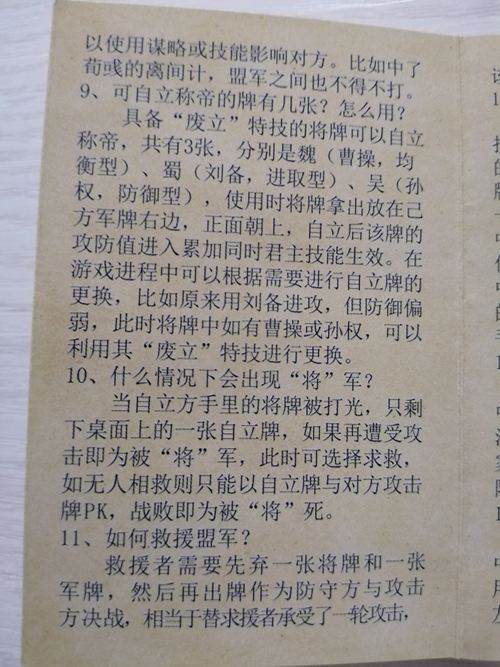 以使用谋略或技能影响对方。比如中了
荀彧的离间计，盟军之间也不得不打。
9、可自立称帝的牌有几张？怎么用？
具备“废立”特技的将牌可以自立
称帝，共有3张，分别是魏（曹操，均
衡型）、蜀（刘备，进取型）、吴（孙
权，防御型），使用时将牌拿出放在己
方军牌右边，正面朝上，自立后该牌的
攻防值进入累加同时君主技能生效。在
游戏进程中可以根据需要进行自立牌的
更换，比如原来用刘备进攻，但防御偏
弱，此时将牌中如有曹操或孙权，可以
利用其“废立”特技进行更换。
10、什么情况下会出现“将”军？
当自立方手里的将牌被打光，只剩
下桌面上的一张自立牌，如果再遭受攻
击即为被“将”军，此时可选择求救，
如无人相救则只能以自立牌与对方攻击
牌PK，战败即为被“将”死。
11、如何救援盟军？
救援者需要先弃一张将牌和一张
军牌，然后再出牌作为防守方与攻击
方决战，相当于替求援者承受了一轮攻击，